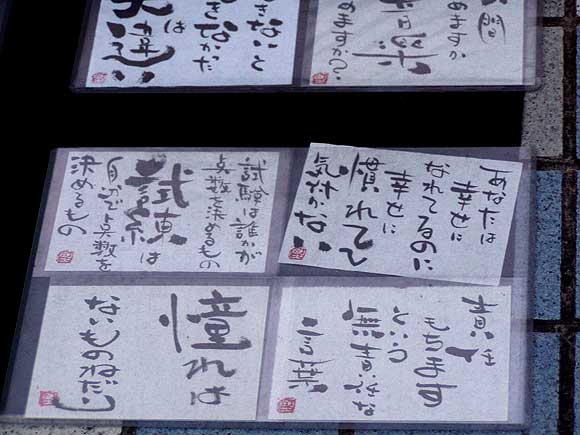 間
めますか
めますか?
きないと
きなかた
は
大違い
あなたは
幸せに
なれてるのに
幸せに
慣れてて
気付かない
試験は誰かが
点数を決めるもの
試練は
自分で点数を
決めるもの
責任
もちます
という
無責任な
言葉
憧れは
ないものねだり